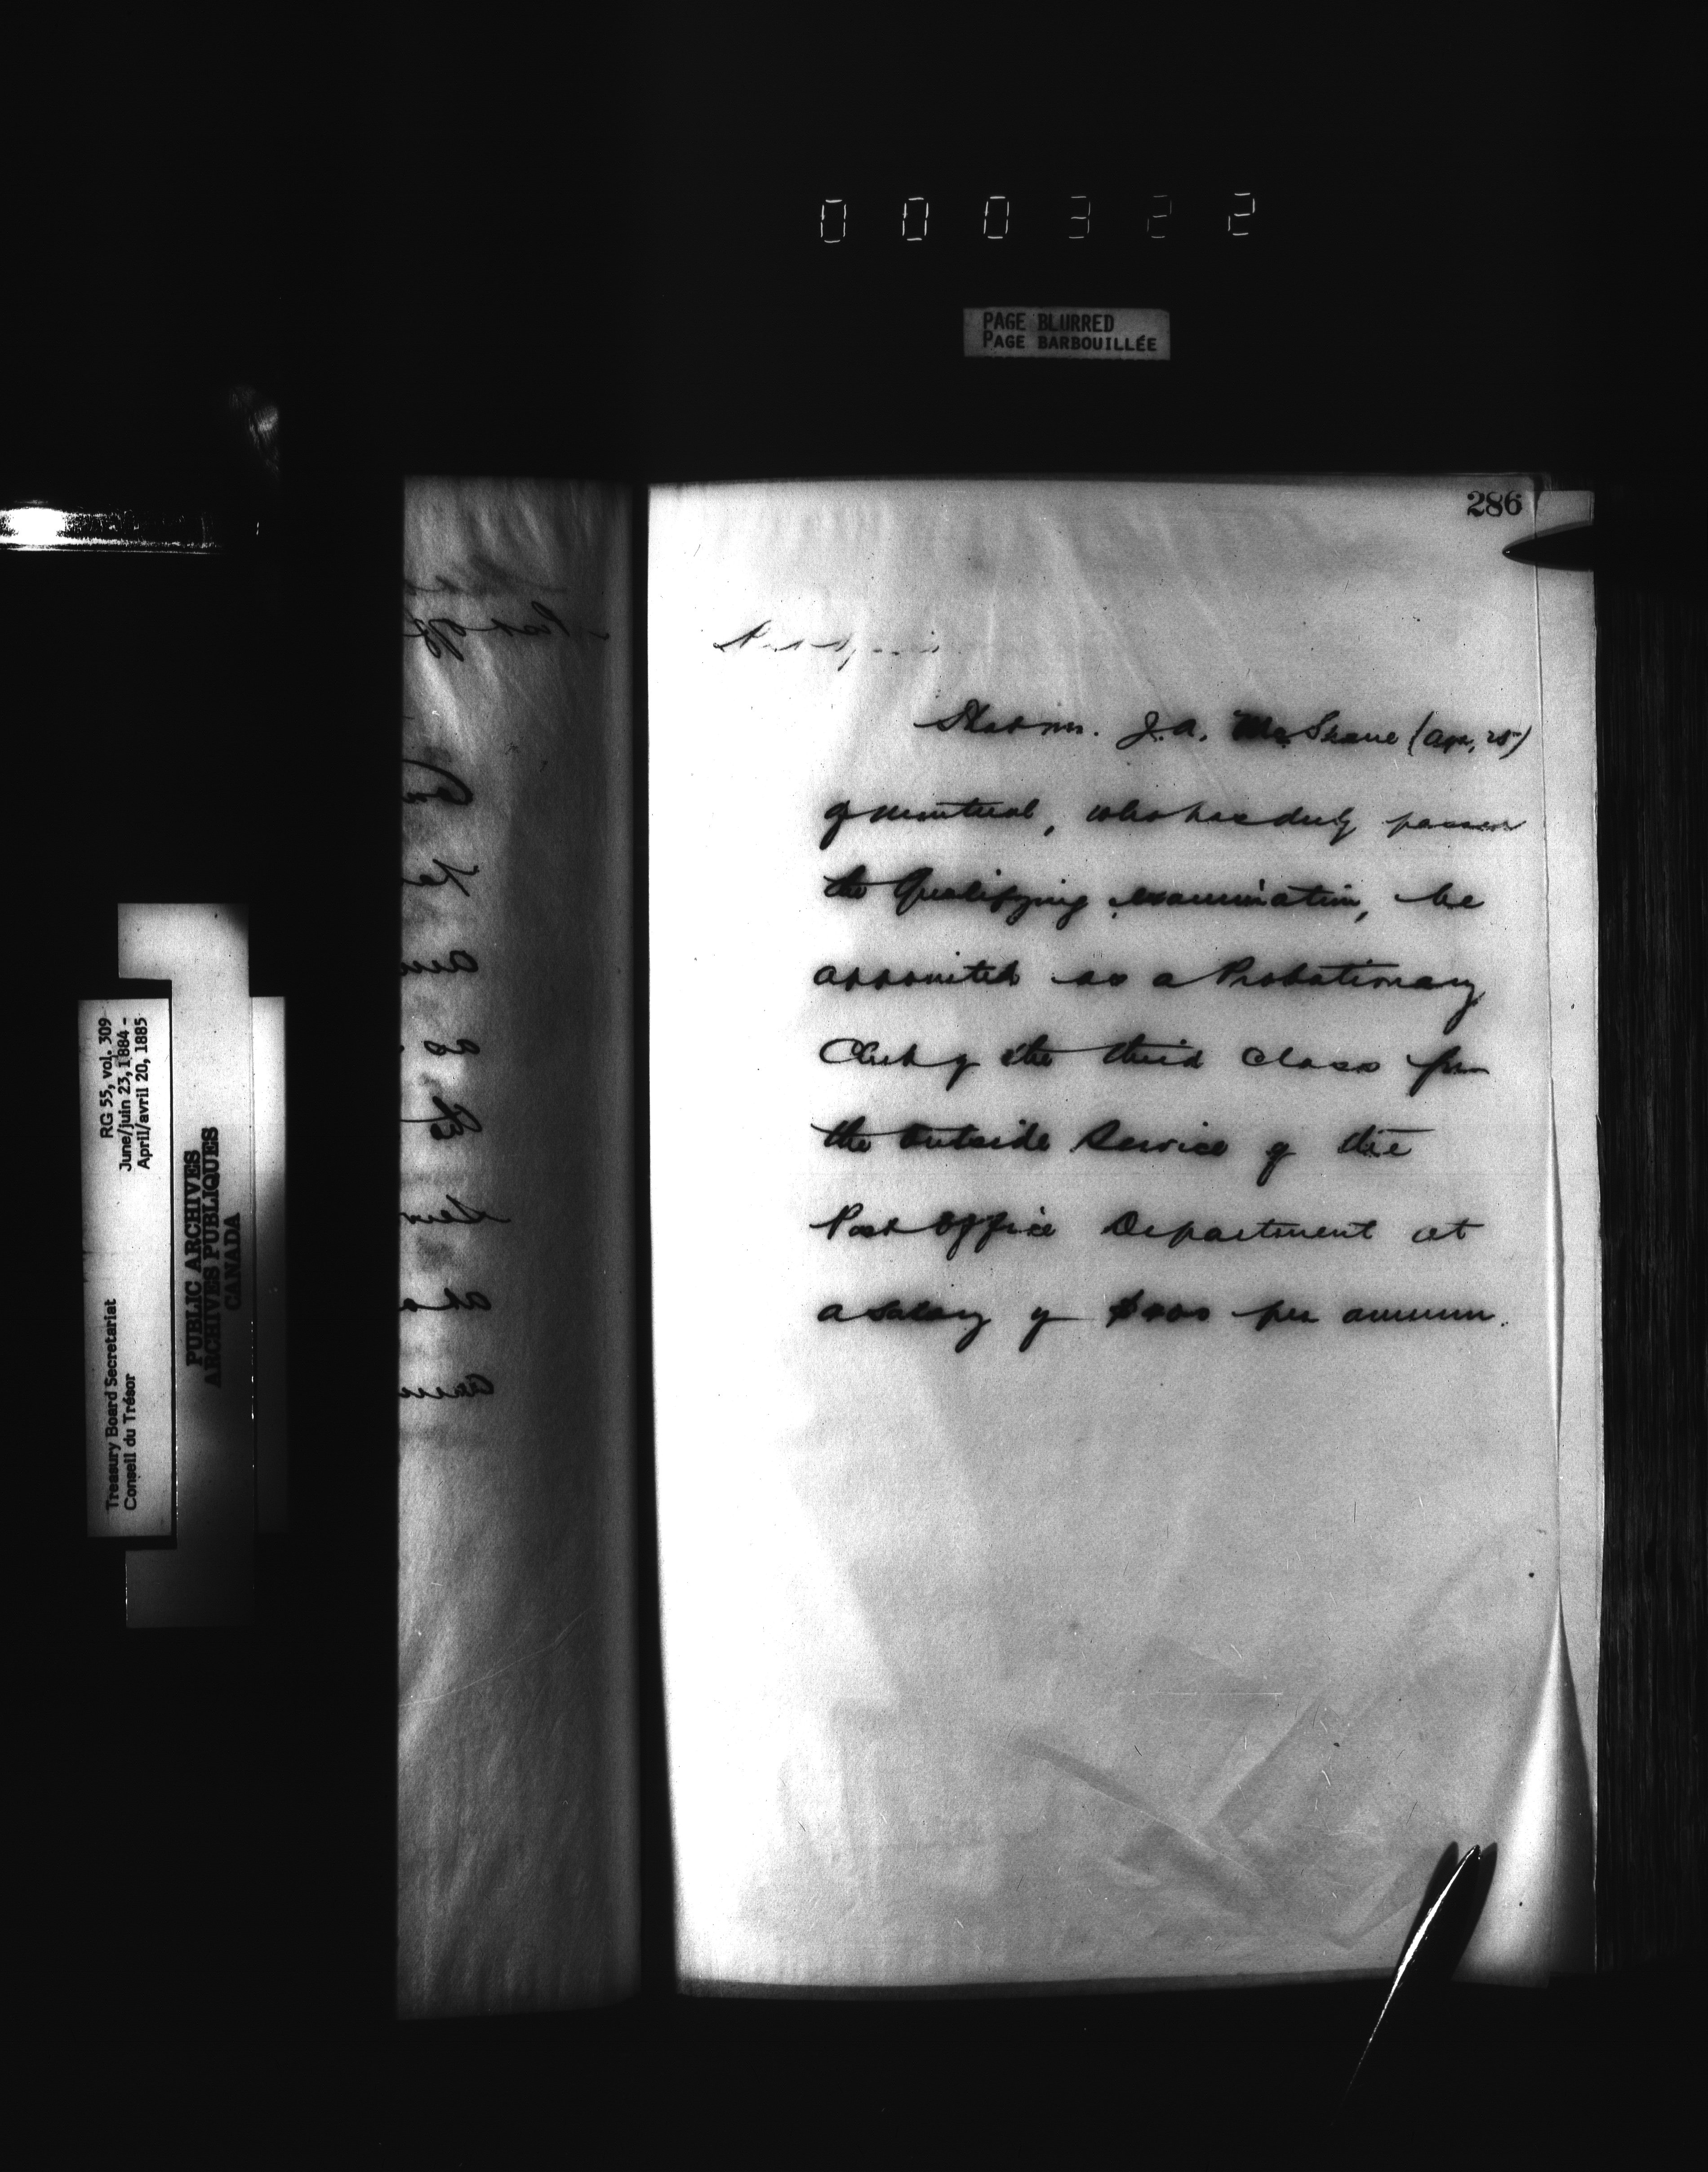 000322
PAGE BLURRED
PAGE BARBOUILLÉE
286
Post Office
That Mr. J.A. McShane (age, 25)
of Montreal, who has duly passed
the Qualifying examination, be
appointed as a Probationary
Clerk of the third class from
the outside Service of the
Post Office Department at
a salary of $400 per annum.
RG 55, vol. 309
June/juin 23, 1884 -
April/avril 20, 1885
Treasury Board Secretariat
Conseil du Trésor
PUBLIC ARCHIVES
ARCHIVES PUBLIQUES
CANADA